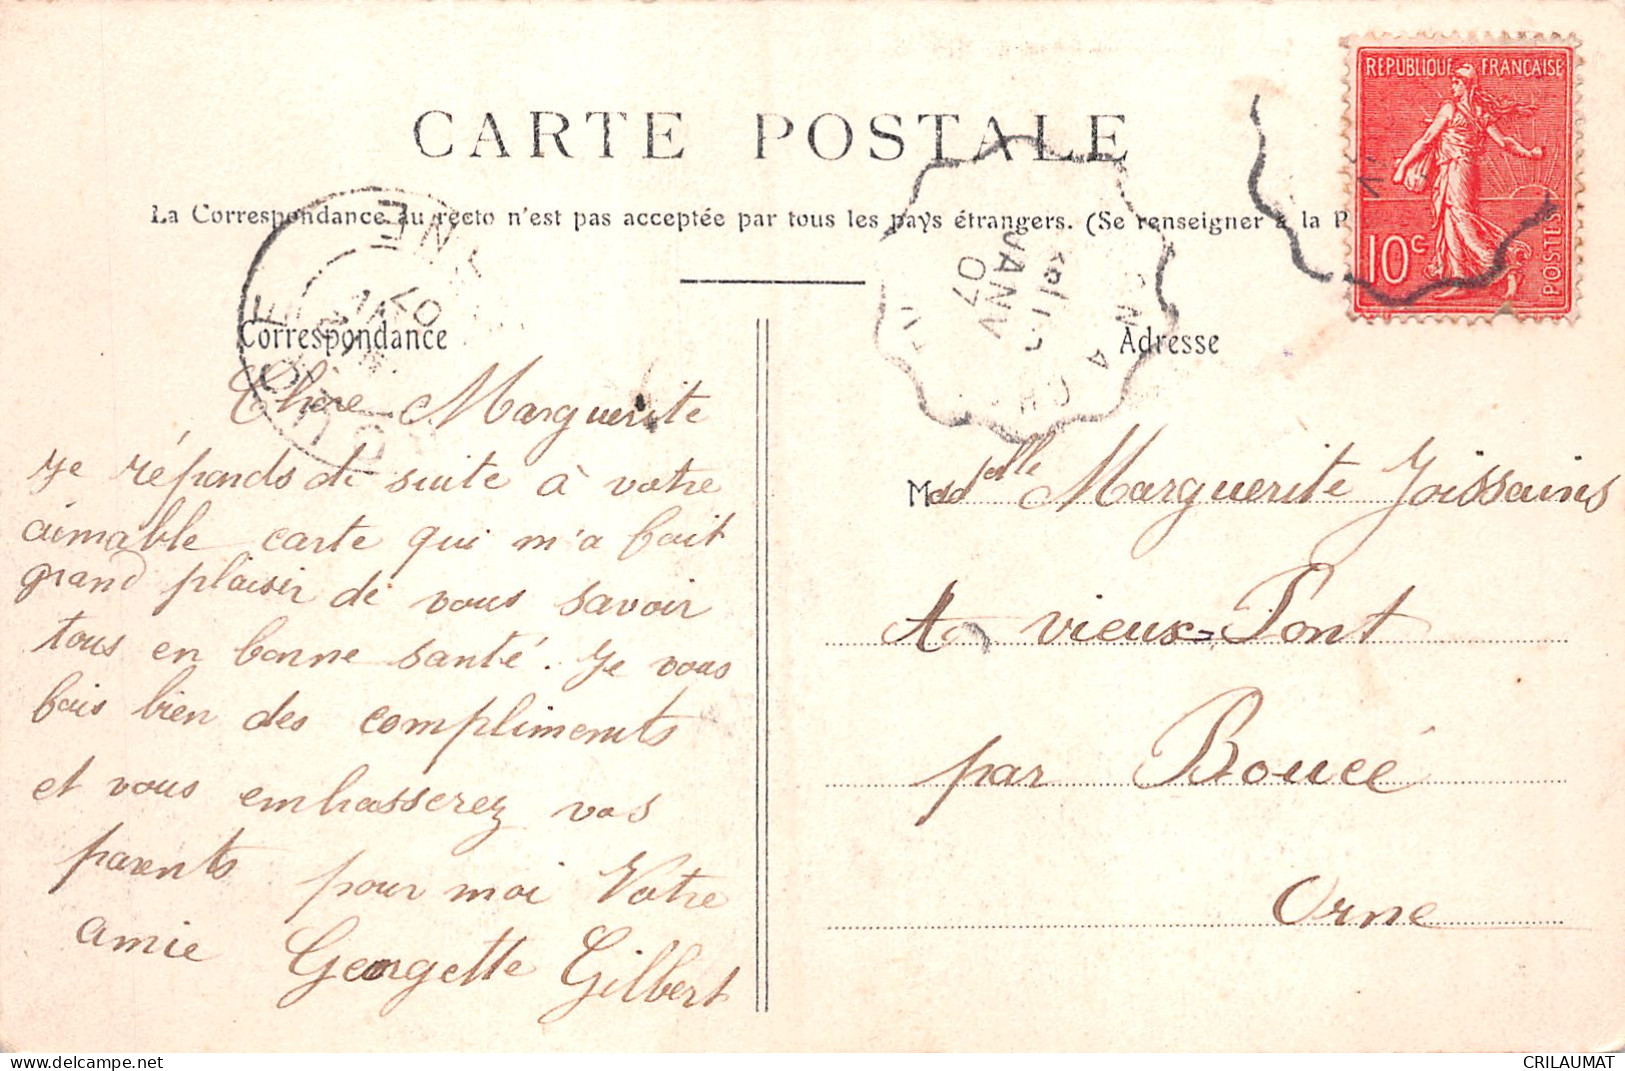 CARTE POSTALE
La Correspondance au recto n'est pas acceptée par tous les pays étrangers. (Se renseigner à la P
REPUBLIQUE FRANCAISE
10c
POSTES
JANV
07
Correspondance
Chere Marguerite
Je réponds de suite à votre
aimable carte qui m'a fait
grand plaisir de vous savoir
tous en bonne santé. Je vous
fais bien des compliments
et vous embasserez vos
parents pour moi Votre
amie Georgette Gilbert
Adresse
Madelle Marguerite Joissains
A vieux-Pont
par Boucé
Orne
www.delcampe.net
CRILAUMAT